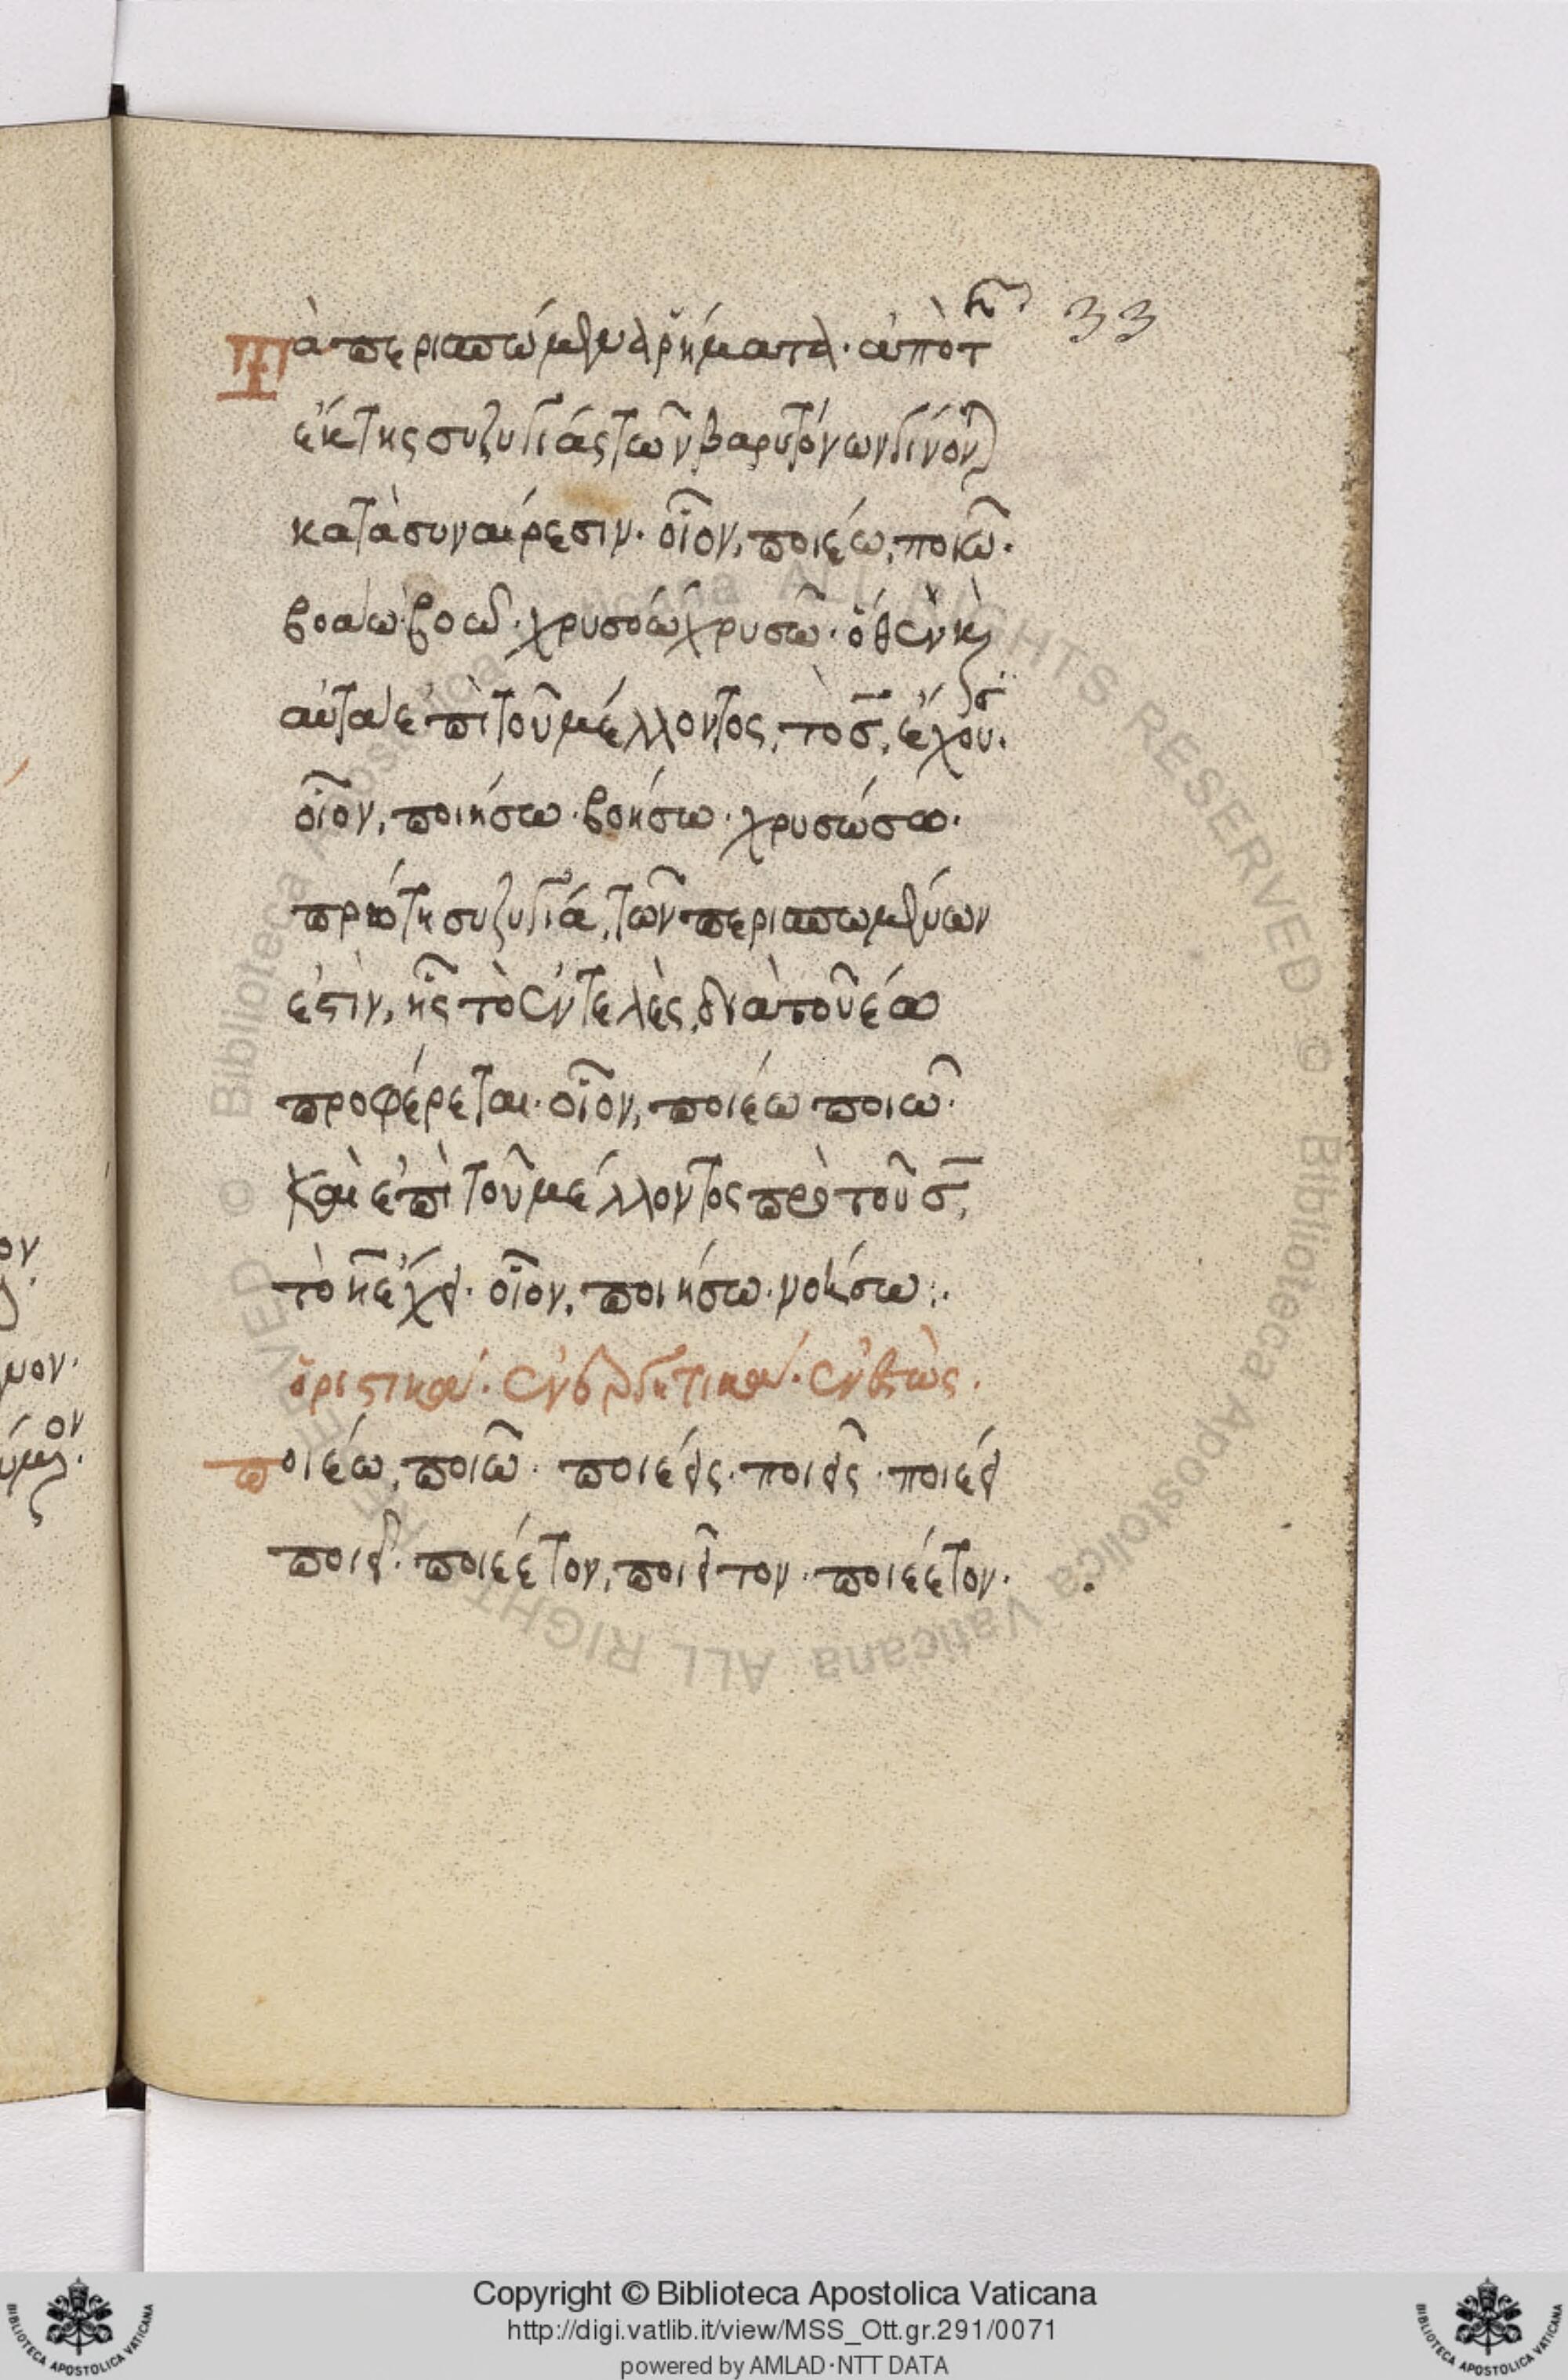 33
Τὰ περισπώμενα ῥήματα· ἀπὸ τῆς
ἕκτης συζυγίας τῶν βαρυτόνων γίνονται
κατὰ συναίρεσιν· οἷον, ποιέω, ποιῶ·
βοάω βοῶ· χρυσόω χρυσῶ· ὅθεν καὶ
αὐτὰ ἐπὶ τοῦ μέλλοντος, τὸ σ, ἔχουσι·
οἷον, ποιήσω· βοήσω· χρυσώσω·
πρώτη συζυγία, τῶν περισπωμένων
ἐστὶν, ἧς τὸ ἐντελὲς, διὰ τοῦ έω
προφέρεται· οἷον, ποιέω ποιῶ·
καὶ ἐπὶ τοῦ μέλλοντος πρὸ τοῦ σ,
τὸ η ἔχει· οἷον, ποιήσω· νοήσω:·
ὁριστικὰ· ἐνεργητικὰ· ἐνεστὼς·
ποιέω, ποιῶ· ποιέεις· ποιεῖς· ποιέει
ποιεῖ· ποιέετον, ποιεῖτον· ποιέετον·
ον
μον·
Copyright © Biblioteca Apostolica Vaticana
http://digi.vatlib.it/view/MSS_Ott.gr.291/0071
powered by AMLAD·NTT DATA
BIBLIOTECA APOSTOLICA VATICANA
BIBLIOTECA APOSTOLICA VATICANA